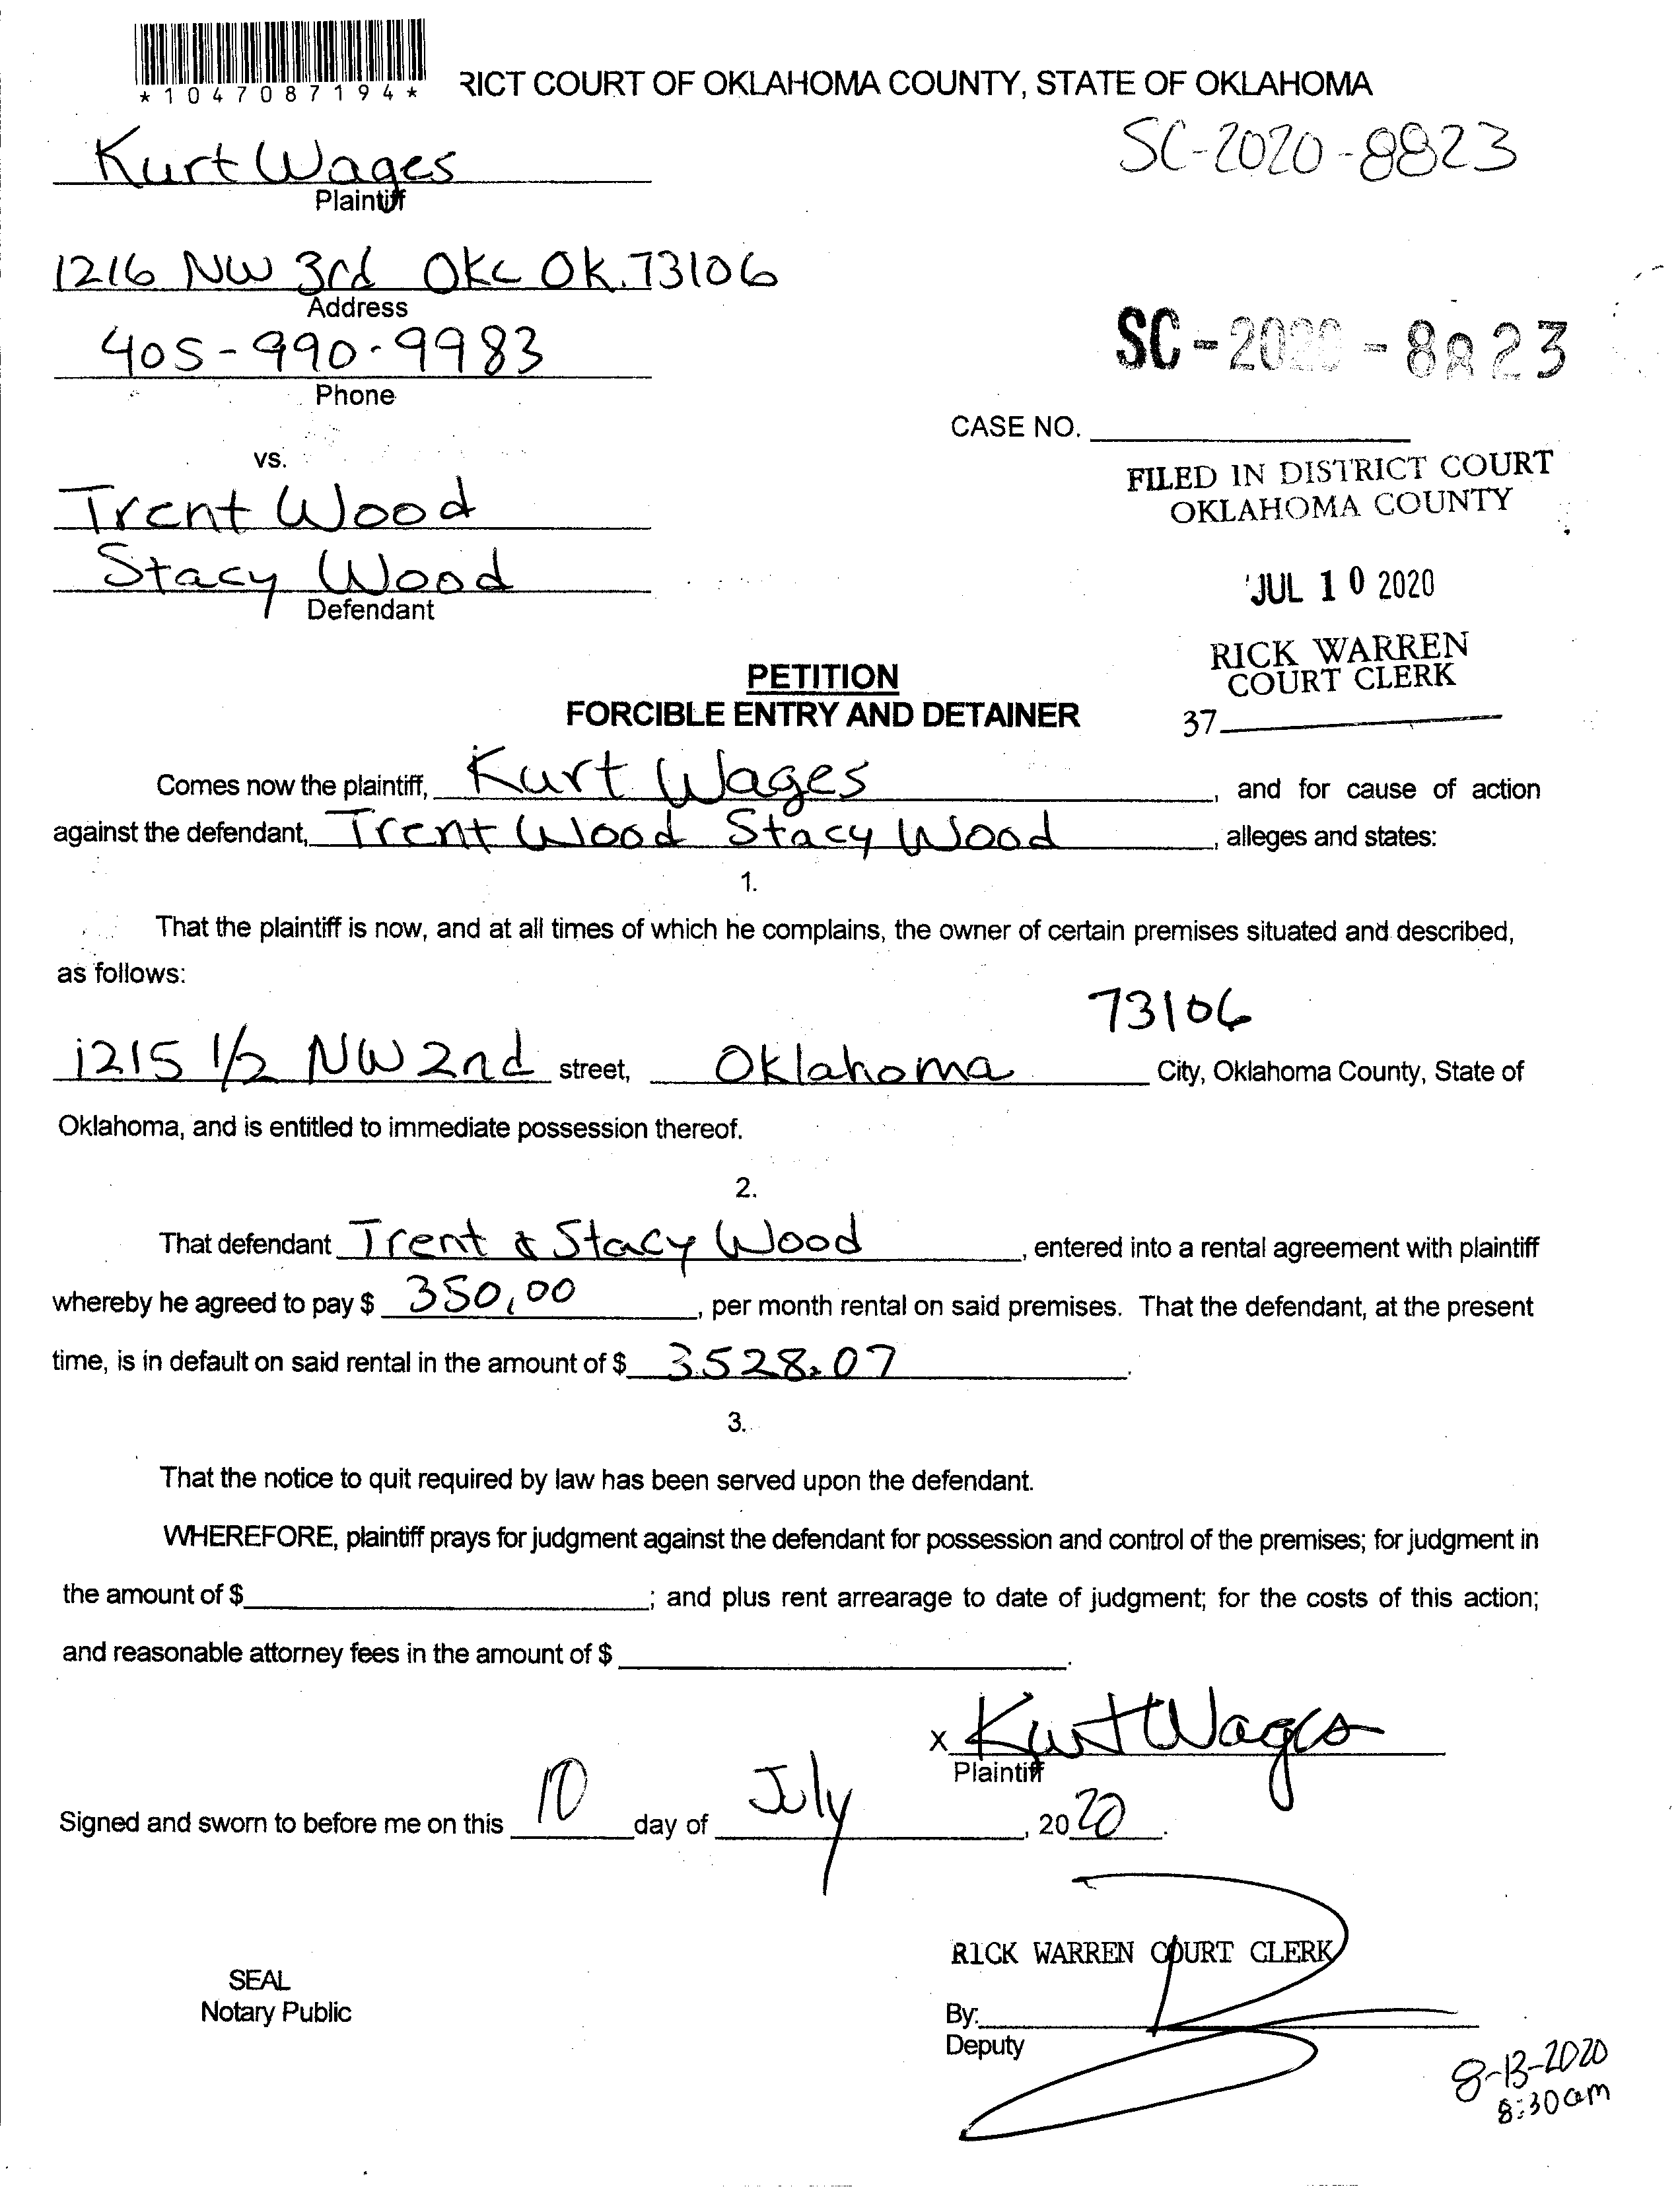 *1047087194*
RICT COURT OF OKLAHOMA COUNTY, STATE OF OKLAHOMA
SC-2020-8823
Kurt Wages
Plaintiff
1216 NW 3rd OKC OK. 73106
Address
405-990-9983
Phone
SC-2020-8823
CASE NO.
vs.
FILED IN DISTRICT COURT
OKLAHOMA COUNTY
Trent Wood
Stacy Wood
Defendant
JUL 10 2020
RICK WARREN
COURT CLERK
37
PETITION
FORCIBLE ENTRY AND DETAINER
Comes now the plaintiff, Kurt Wages, and for cause of action
against the defendant, Trent Wood Stacy Wood, alleges and states:
1.
That the plaintiff is now, and at all times of which he complains, the owner of certain premises situated and described,
as follows:
73106
1215 1/2 NW 2nd street, Oklahoma City, Oklahoma County, State of
Oklahoma, and is entitled to immediate possession thereof.
2.
That defendant Trent & Stacy Wood, entered into a rental agreement with plaintiff
whereby he agreed to pay $ 350.00, per month rental on said premises. That the defendant, at the present
time, is in default on said rental in the amount of $ 3528.07.
3.
That the notice to quit required by law has been served upon the defendant.
WHEREFORE, plaintiff prays for judgment against the defendant for possession and control of the premises; for judgment in
the amount of $; and plus rent arrearage to date of judgment; for the costs of this action;
and reasonable attorney fees in the amount of $.
x Kurt Wages
Plaintiff
Signed and sworn to before me on this 10 day of July, 2020.
RICK WARREN COURT CLERK
SEAL
Notary Public
By:
Deputy
8-13-2020
8:30am